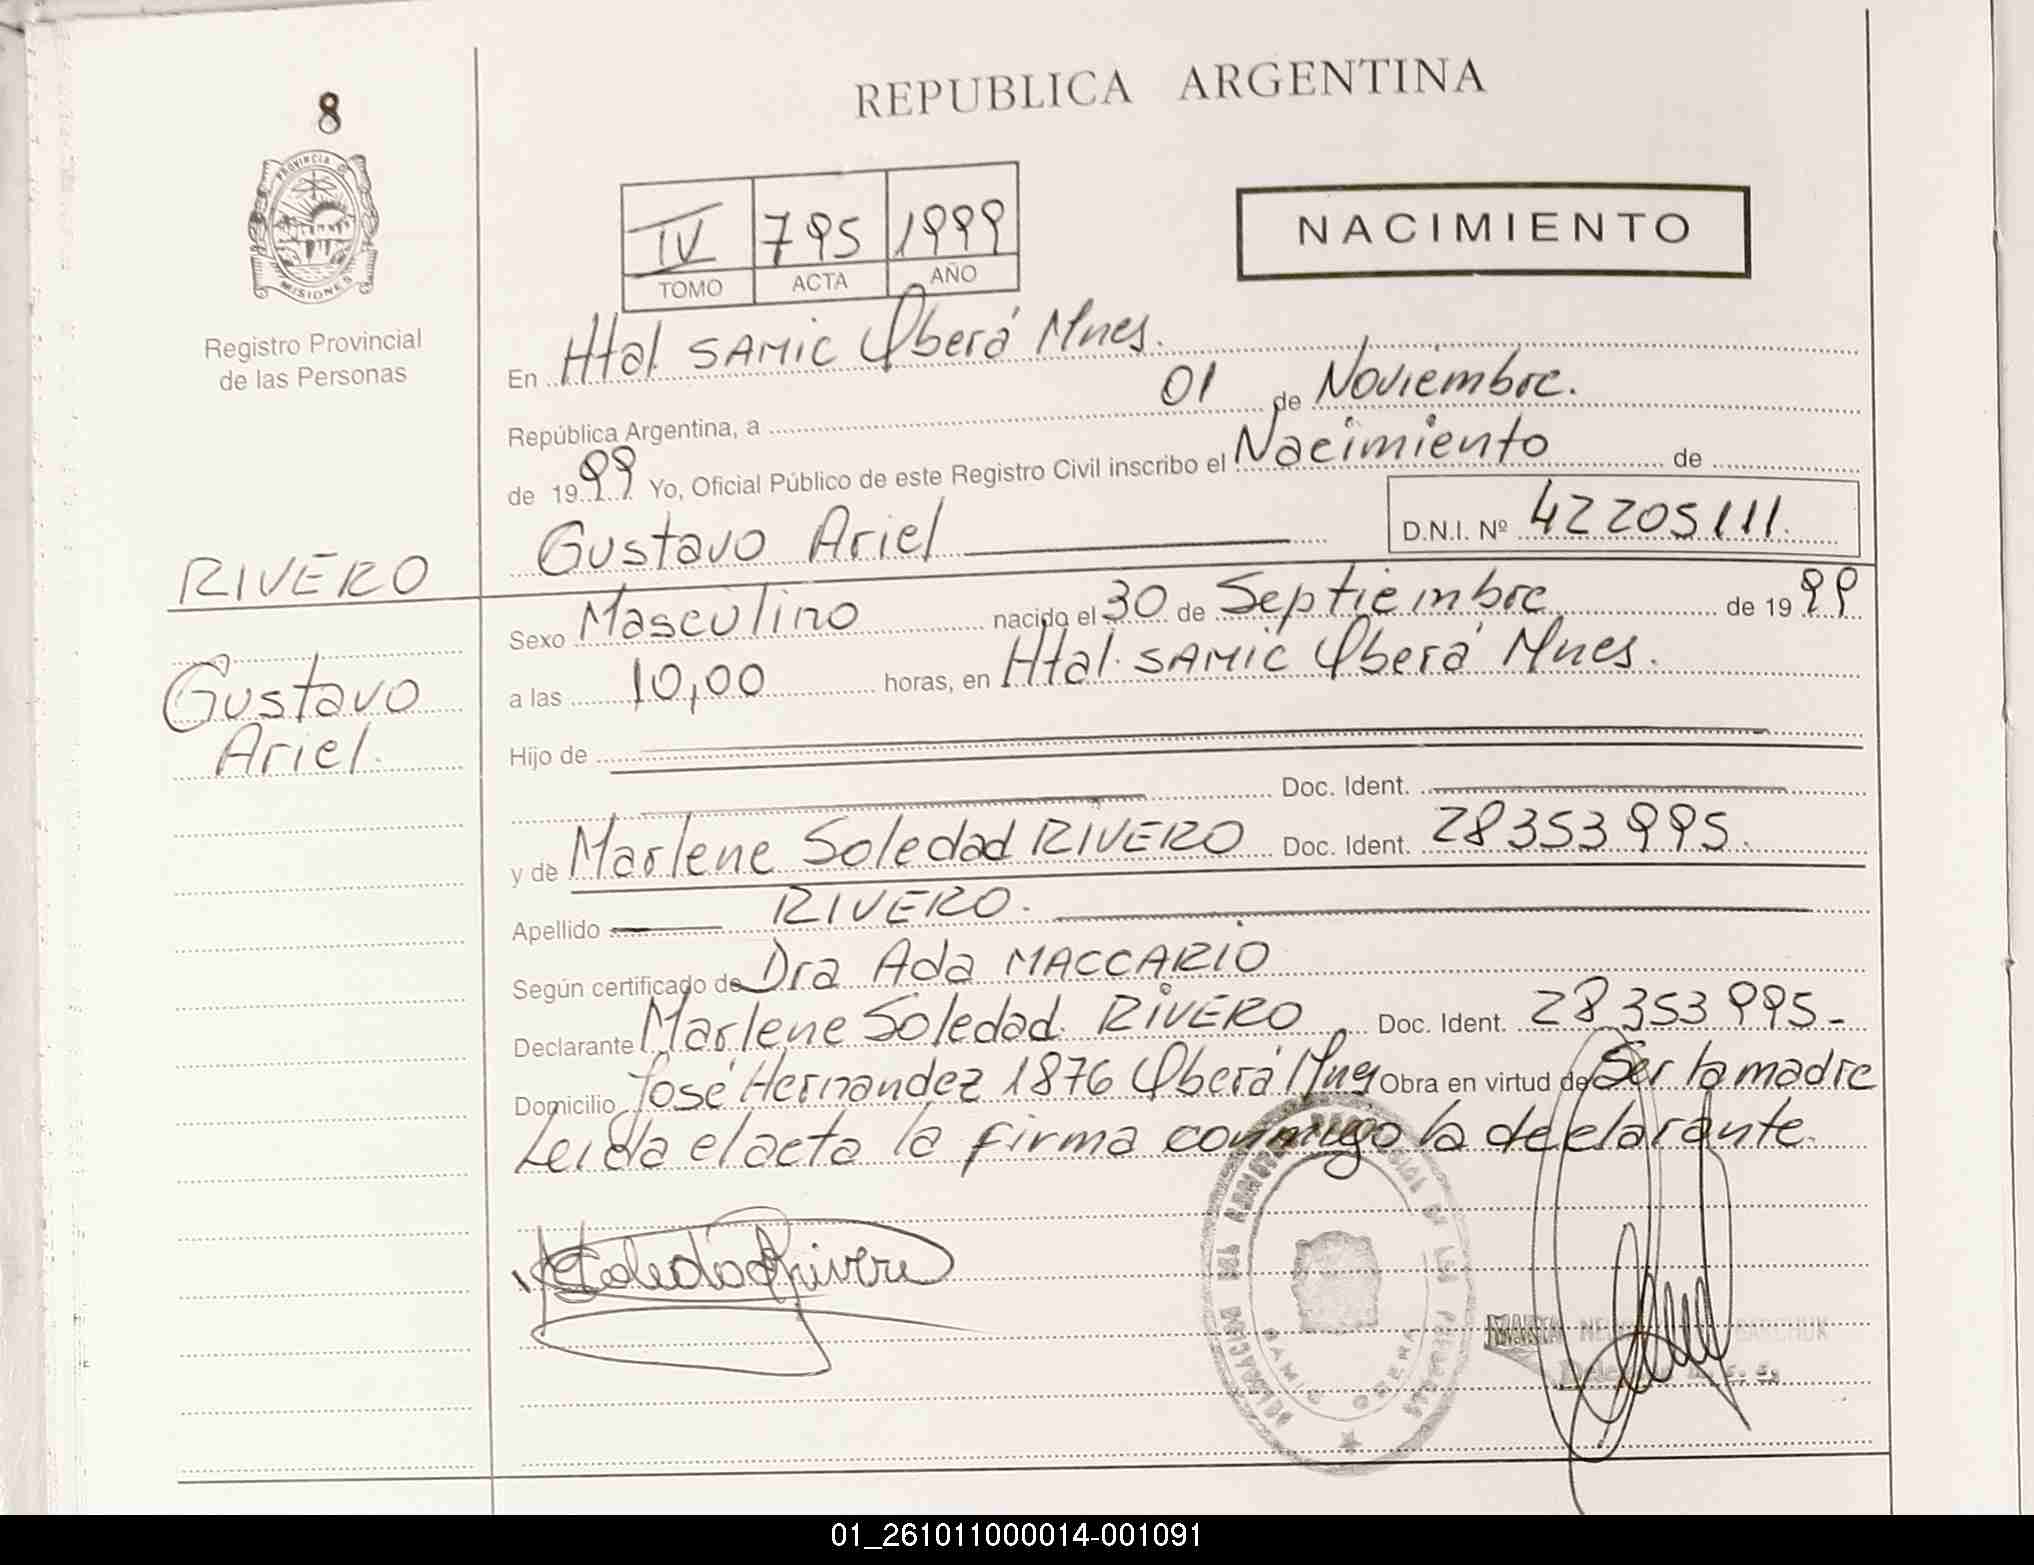 8
PROVINCIA D
MISIONES
Registro Provincial
de las Personas
RIVERO
Gustavo
Ariel.
REPUBLICA ARGENTINA
IV 795 1999
TOMO ACTA AÑO
NACIMIENTO
En Htal. SAMIC Oberá Mnes.
República Argentina, a 01 de Noviembre.
de 1999 Yo, Oficial Público de este Registro Civil inscribo el Nacimiento de
Gustavo Ariel D.N.I. Nº 42205111.
Sexo Masculino nacido el 30 de Septiembre de 1999
a las 10,00 horas, en Htal. SAMIC Oberá Mnes.
Hijo de
Doc. Ident.
y de Marlene Soledad RIVERO Doc. Ident. 28353995.
Apellido RIVERO.
Según certificado de Dra Ada MACCARIO
Declarante Marlene Soledad RIVERO Doc. Ident. 28353995-
Domicilio José Hernandez 1876 Oberá Mnes Obra en virtud de Ser la madre
Leida el acta la firma conmigo la declarante.
Soledad Rivero
SAMIC OBERA
01_261011000014-001091